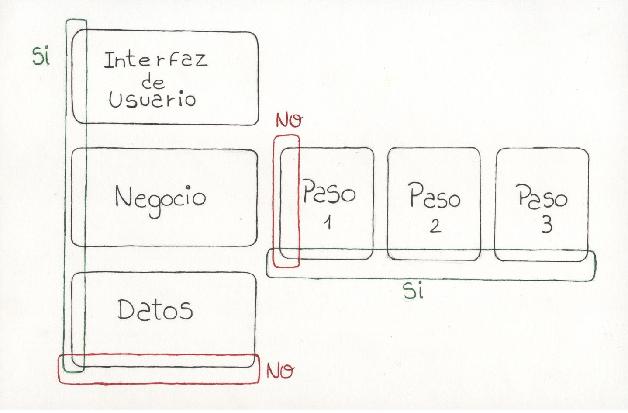 Si
Interfaz
de
Usuario
Negocio
Datos
No
No
Paso
1
Paso
2
Paso
3
Si